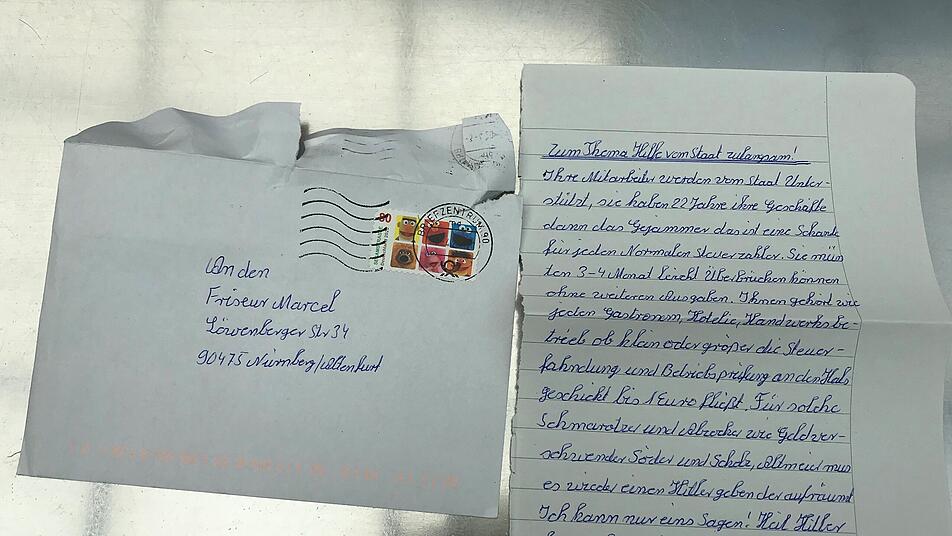 80
BRIEFZENTRUM 90
An den
Friseur Marcel
Löwenberger Str 34
90475 Nürnberg/Altenfurt
Zum Thema Hilfe vom Staat zulangsam!
Ihre Mitarbeiter werden vom Staat Unter-
stützt, sie haben 22 Jahre ihre Geschäfte
dann das Gejammer das ist eine Schante
für jeden Normalen Steuerzahler. Sie müs
ten 3-4 Monat leicht Überbrücken können
ohne weiteren Ausgaben. Ihnen gehört wie
jeden Gastronom, Hotelie, Handwerks be-
trieb ob klein oder großer die Steuer-
fahndung und Betriebsprüfung an den Hals
geschickt bis 1 Euro fließt. Für solche
Schmarotzer und Abzocker wie Geldver-
schwender Söder und Scholz, Altmeier mus
es wieder einen Hitler geben der aufräumt
Ich kann nur eins Sagen! Heil Hitler